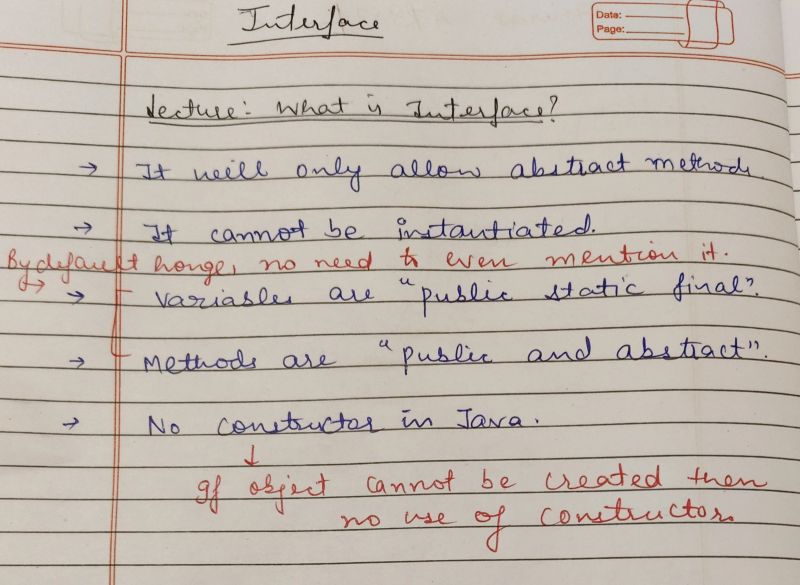 Interface
Date:
Page:
Lecture: What is Interface?
→ It will only allow abstract methods.
→ It cannot be instantiated.
By default honge, no need to even mention it.
→ → Variables are "public static final".
→ Methods are "public and abstract".
→ No constructor in Java.
↓
If object cannot be created then
no use of constructor.